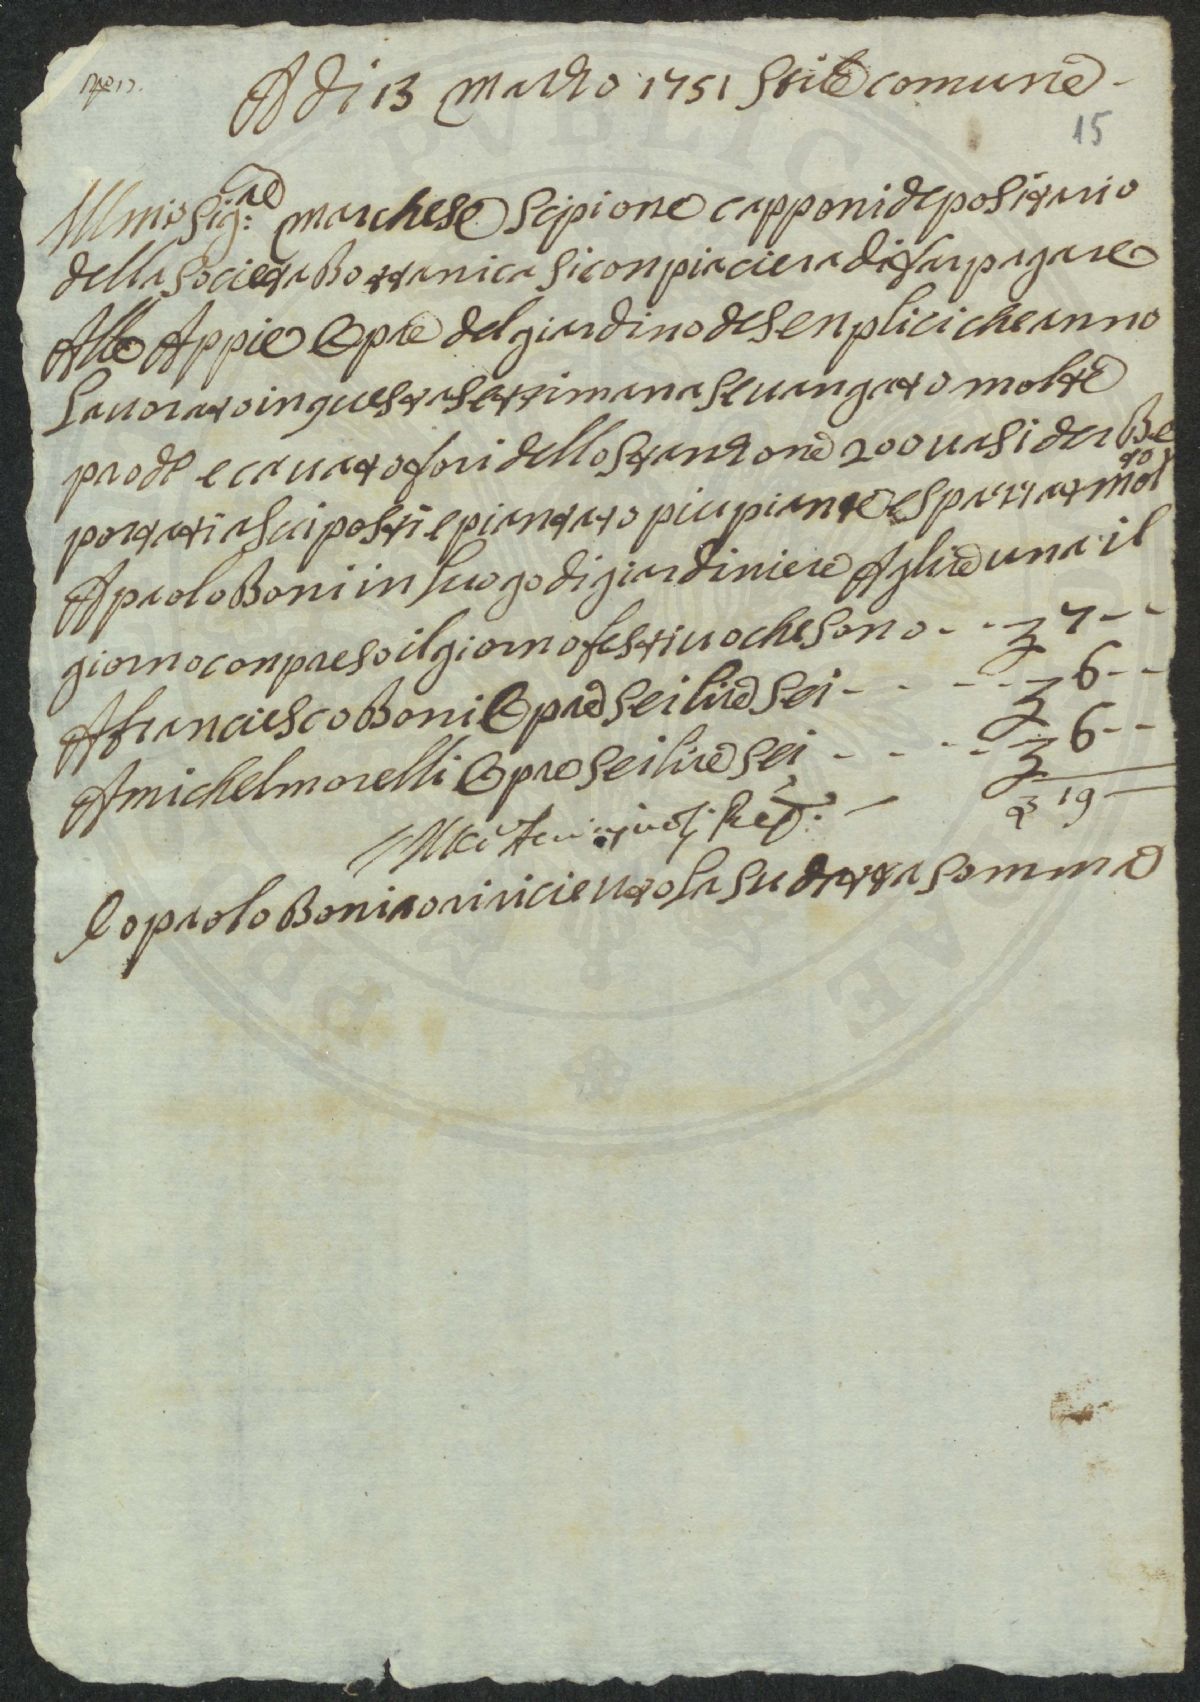 A di 13 Marzo 1751 Stile comune
15
Illmo Sig:re Marchese Scipione capponi depositario
della Societa Bottanica si conpiaciera di far pagare
Alle Appie Opre del giardino de Senplici che anno
Lauorato in questa settimana se uangato molte
prode e cauato fori dello stanzone 200 uasi der Be
portati a sui posti e piantato piu piante e spazzato mol to
A paolo Boni in luogo di giardiniere A lire una il
giorno conpreso il giorno festiuo che sono - - £ 7 - -
A franciesco Boni Opre sei lire sei - - - - £ 6 - -
A michel morelli Opre sei lire sei - - - - £ 6 - -
£ 19
Io paolo Boni o ricieuto la su detta somma